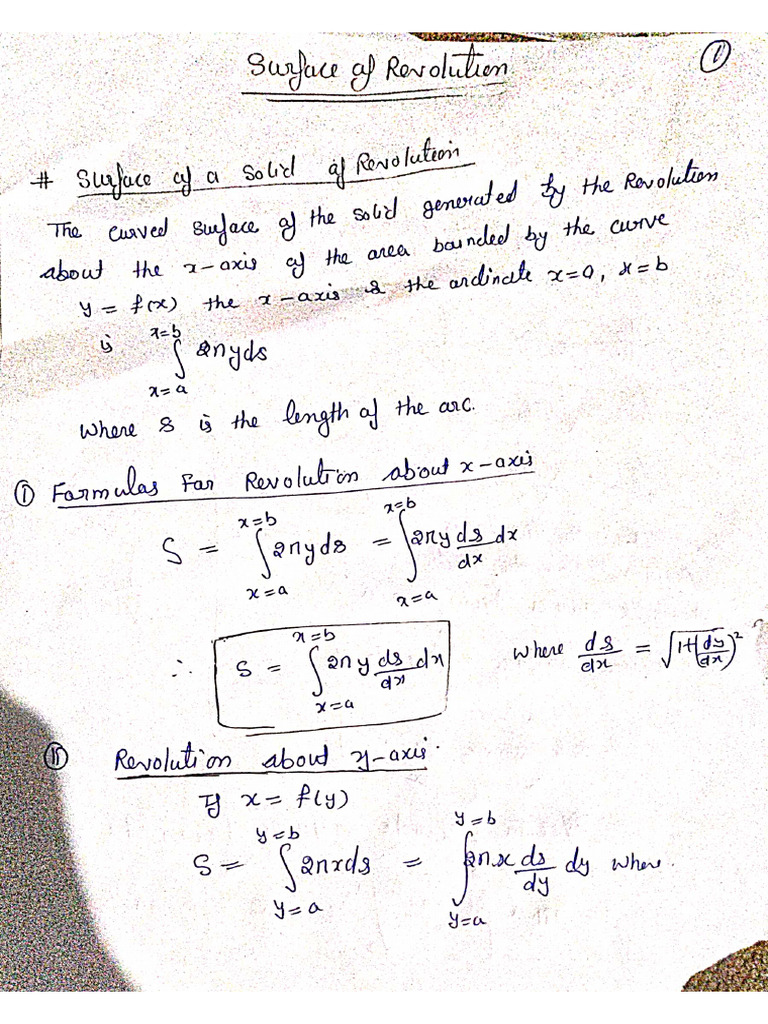 ①
Surface of Revolution
# Surface of a Solid of Revolution
The curved surface of the solid generated by the Revolution
about the x-axis of the area bounded by the curve
y = f(x) the x-axis & the ordinate x=a, x=b
is ∫_{x=a}^{x=b} 2πyds
where s is the length of the arc.
① Formulas For Revolution about x-axis
S = ∫_{x=a}^{x=b} 2πyds = ∫_{x=a}^{x=b} 2πy ds/dx dx
∴ S = ∫_{x=a}^{x=b} 2πy ds/dx dx where ds/dx = √(1+(dy/dx)²)
⑪ Revolution about y-axis.
If x = f(y)
S = ∫_{y=a}^{y=b} 2πxds = ∫_{y=a}^{y=b} 2πx ds/dy dy where.